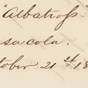 "Albatross.
sacola.
tober 21th 18